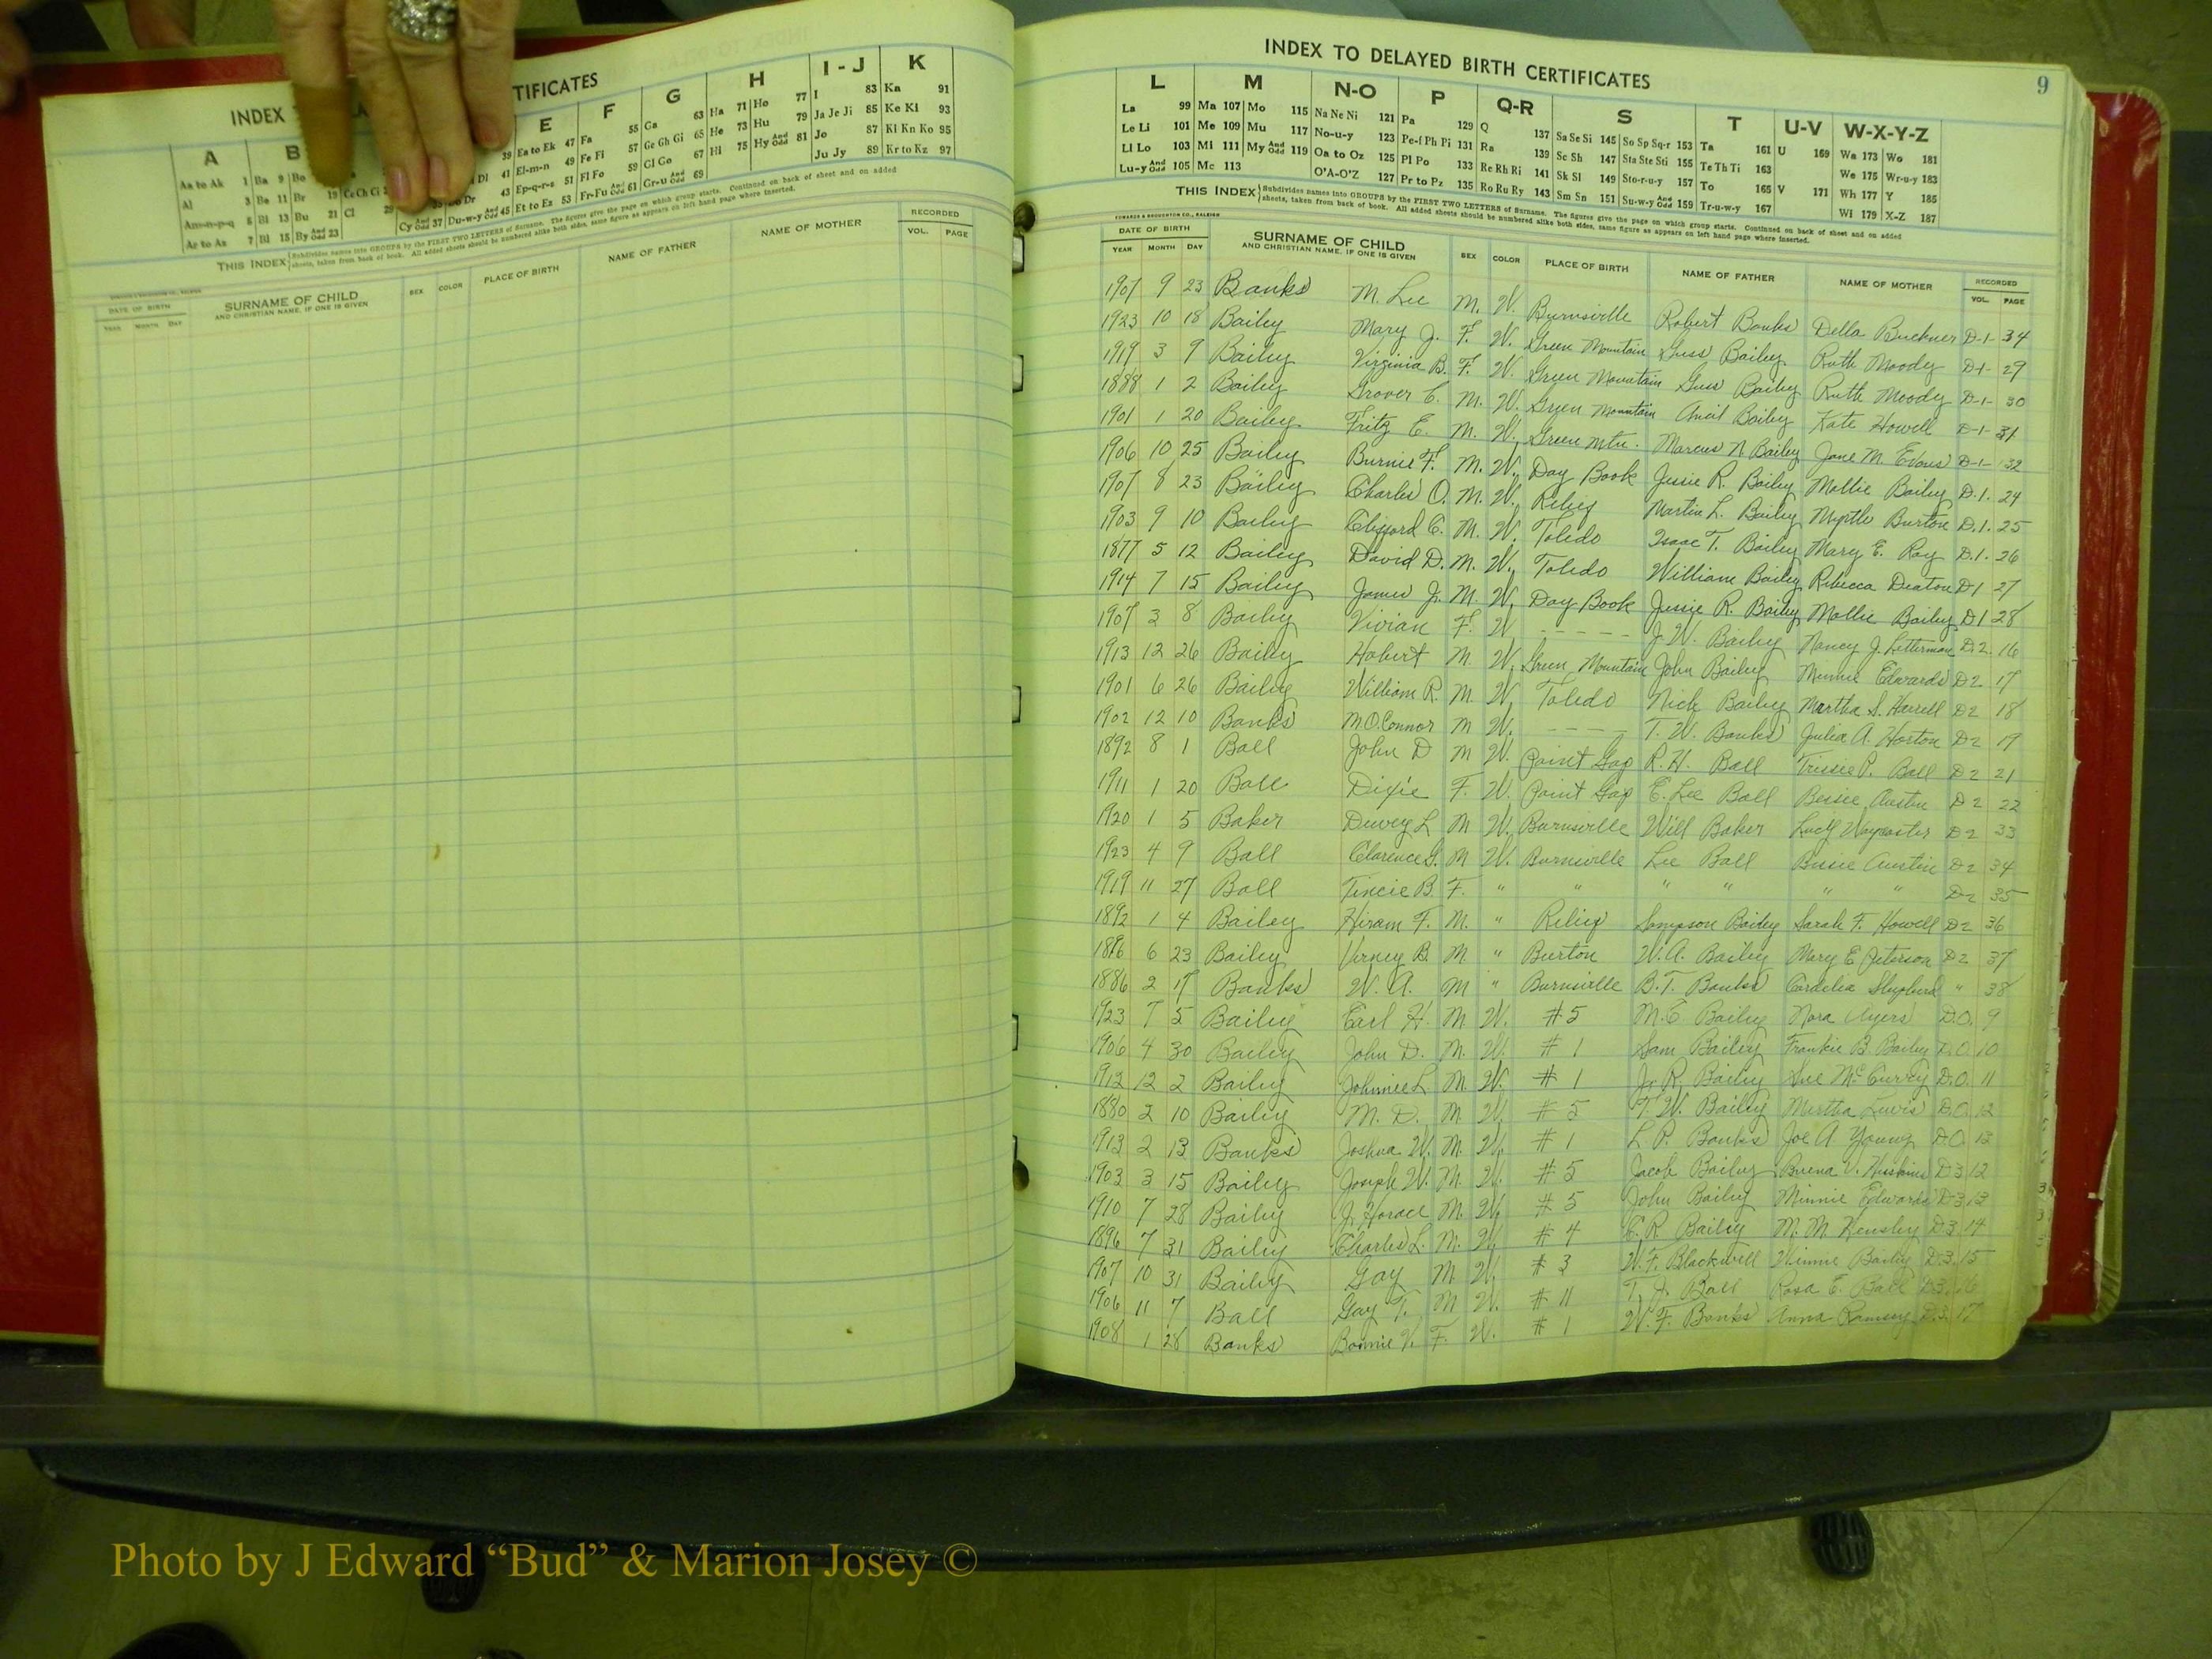 INDEX TIFICATES
A B E F G H I - J K
Aa to Ak 1 Ba 9 Bo 39 Ea to Ek 47 Fa 55 Ga 63 Ha 71 Ho 77 I 83 Ka 91
Al 3 Be 11 Br 19 Ce Ch Ci Dl 41 El-m-n 49 Fe Fi 57 Ge Gh Gi 65 He 73 Hu 79 Ja Je Ji 85 Ke Kl 93
Am-n-p-q 5 Bi 13 Bu 21 Cl 29 Dr 43 Ep-q-r-s 51 Fl Fo 59 Gl Go 67 Hi 75 Hy And Odd 81 Jo 87 Kl Kn Ko 95
Ar to Az 7 Bl 15 By And Odd 23 Cy And Odd 37 Du-w-y And Odd 45 Et to Ez 53 Fr-Fu And Odd 61 Gr-u And Odd 69 Ju Jy 89 Kr to Kz 97
THIS INDEX Subdivides names into GROUPS by the FIRST TWO LETTERS of Surname. The figures give the page on which group starts. Continued on back of sheet and on added
sheets, taken from back of book. All added sheets should be numbered alike both sides, same figure as appears on left hand page where inserted.
DATE OF BIRTH SURNAME OF CHILD SEX COLOR PLACE OF BIRTH NAME OF FATHER NAME OF MOTHER RECORDED
YEAR MONTH DAY AND CHRISTIAN NAME, IF ONE IS GIVEN VOL. PAGE
INDEX TO DELAYED BIRTH CERTIFICATES 9
L M N-O P Q-R S T U-V W-X-Y-Z
La 99 Ma 107 Mo 115 Na Ne Ni 121 Pa 129 Q 137 Sa Se Si 145 So Sp Sq-r 153 Ta 161 U 169 Wa 173 Wo 181
Le Li 101 Me 109 Mu 117 No-u-y 123 Pe-f Ph Pi 131 Ra 139 Sc Sh 147 Sta Ste Sti 155 Te Th Ti 163 We 175 Wr-u-y 183
Ll Lo 103 Mi 111 My And Odd 119 Oa to Oz 125 Pl Po 133 Re Rh Ri 141 Sk Sl 149 Sto-r-u-y 157 To 165 V 171 Wh 177 Y 185
Lu-y And Odd 105 Mc 113 O'A-O'Z 127 Pr to Pz 135 Ro Ru Ry 143 Sm Sn 151 Su-w-y And Odd 159 Tr-u-w-y 167 Wi 179 X-Z 187
THIS INDEX Subdivides names into GROUPS by the FIRST TWO LETTERS of Surname. The figures give the page on which group starts. Continued on back of sheet and on added
sheets, taken from back of book. All added sheets should be numbered alike both sides, same figure as appears on left hand page where inserted.
EDWARDS & BROUGHTON CO., RALEIGH
DATE OF BIRTH SURNAME OF CHILD SEX COLOR PLACE OF BIRTH NAME OF FATHER NAME OF MOTHER RECORDED
YEAR MONTH DAY AND CHRISTIAN NAME, IF ONE IS GIVEN VOL. PAGE
1907 9 23 Banks M. Lee M. W. Burnsville Robert Banks Della Buckner D-1- 34
1923 10 18 Bailey Mary J. F. W. Green Mountain Guss Bailey Ruth Moody D-1- 29
1919 3 9 Bailey Virginia B. F. W. Green Mountain Guss Bailey Ruth Moody D-1- 30
1888 1 2 Bailey Grover C. M. W. Green Mountain Bailey Kate Howell D-1- 31
1901 1 20 Bailey Fritz E. M. W. Green Mtn. Marcus N Bailey Jane M. Evans D-1- 32
1906 10 25 Bailey Burnie F. M. W. Day Book Jessie R. Bailey Mollie Bailey D.1. 24
1907 8 23 Bailey Charles O. M. W. Relief Martin L. Bailey Myrtle Burton D.1. 25
1903 9 10 Bailey Clifford C. M. W. Toledo Isaac T. Bailey Mary E. Ray D.1. 26
1877 5 12 Bailey David D. M. W. Toledo William Bailey Rebecca Deaton D1 27
1914 7 15 Bailey James J. M. W. Day Book Jessie R. Bailey Mollie Bailey D1 28
1907 3 8 Bailey Vivian F. W - - - - - J. W. Bailey Nancy J. Letterman D.2. 16
1913 12 26 Bailey Hobert M. W. Green Mountain John Bailey Minnie Edwards D2 17
1901 6 26 Bailey William R. M. W. Toledo Nick Bailey Martha S. Harrell D2 18
1902 12 10 Banks M.O.Connor M W. - - - - T. W. Banks Julia A. Horton D2 19
1892 8 1 Ball John D M W. Paint Gap R. H. Ball P. Ball D2 21
1911 1 20 Ball Dixie F. W. Paint Gap E. Lee Ball Bessie Austin D2 22
1920 1 5 Baker Dewey L M W. Burnsville Will Baker Lucy Waycaster D2 33
1923 4 9 Ball Clarence G. M W. Burnsville Lee Ball Bessie Austin D2 34
1919 11 27 Ball Tincie B F. " " " " " " D2 35
1892 1 4 Bailey Hiram F. M. " Relief Sampson Bailey Sarah F. Howell D2 36
6 23 Bailey Verney B. M. " Burton W. A. Bailey Mary E Peterson D2 37
1886 2 17 Banks W. A. M " Burnsville B. T. Banks Cordelia Shepherd " 38
1923 7 5 Bailey Earl H. M. W. #5 M. E Bailey Nora Ayers D.O. 9
1906 4 30 Bailey John D. M. W. #1 Sam Bailey Frankie B. Bailey D.O. 10
1912 12 2 Bailey Johnnie L. M W. #1 J. R. Bailey McCurry D.O. 11
1880 2 10 Bailey M. D. M W. #5 T. W. Bailey Martha Lewis D.O. 12
1913 2 13 Banks Joshua W. M. W. #1 L. P. Banks Joe A. Young D.O. 13
1903 3 15 Bailey Joseph W. M. W. #5 Jacob Bailey V. D3 12
1910 7 28 Bailey J. Horace M. W. #5 John Bailey Minnie Edwards D3 13
1896 7 31 Bailey Charles L. M. W. #4 R. Bailey M. M. Hensley D3 14
1907 10 31 Bailey Gay M W. #3 W. F. Blackwell Minnie Bailey D.3. 15
1906 11 7 Ball Gay T. M W. #11 T. J. Ball Rosa E. Ball D3. 16
1908 1 28 Banks Bonnie V. F. W. #1 W. F. Banks Anna Ramsey D.3. 17
Photo by J Edward “Bud” & Marion Josey ©